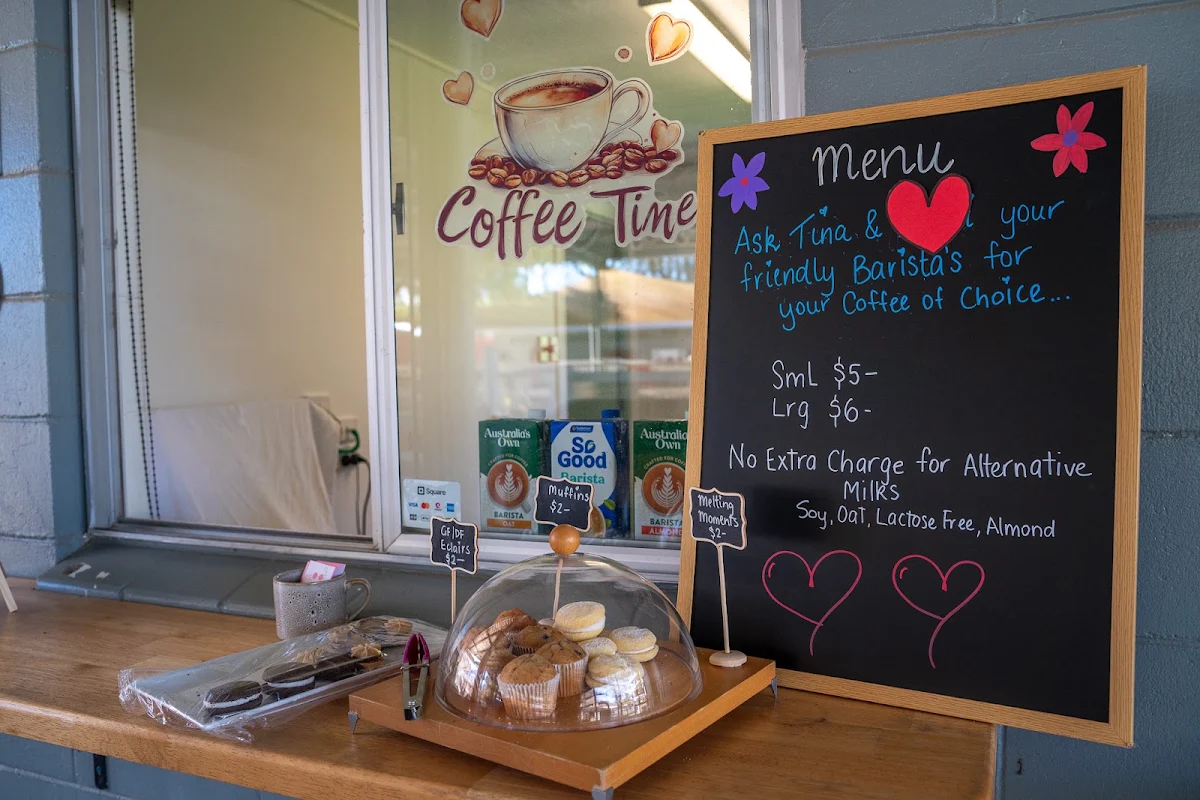 Coffee Time
Menu
Ask Tina & your
friendly Barista's for
your Coffee of Choice...
Sml $5-
Lrg $6-
No Extra Charge for Alternative
Milks
Soy, Oat, Lactose Free, Almond
Square
VISA
Australia's
Own
BARISTA
OAT
So
Good
Barista
Australia's
Own
BARISTA
ALMOND
GF/DF
Eclairs
$2-
Muffins
$2-
Melting
Moments
$2-